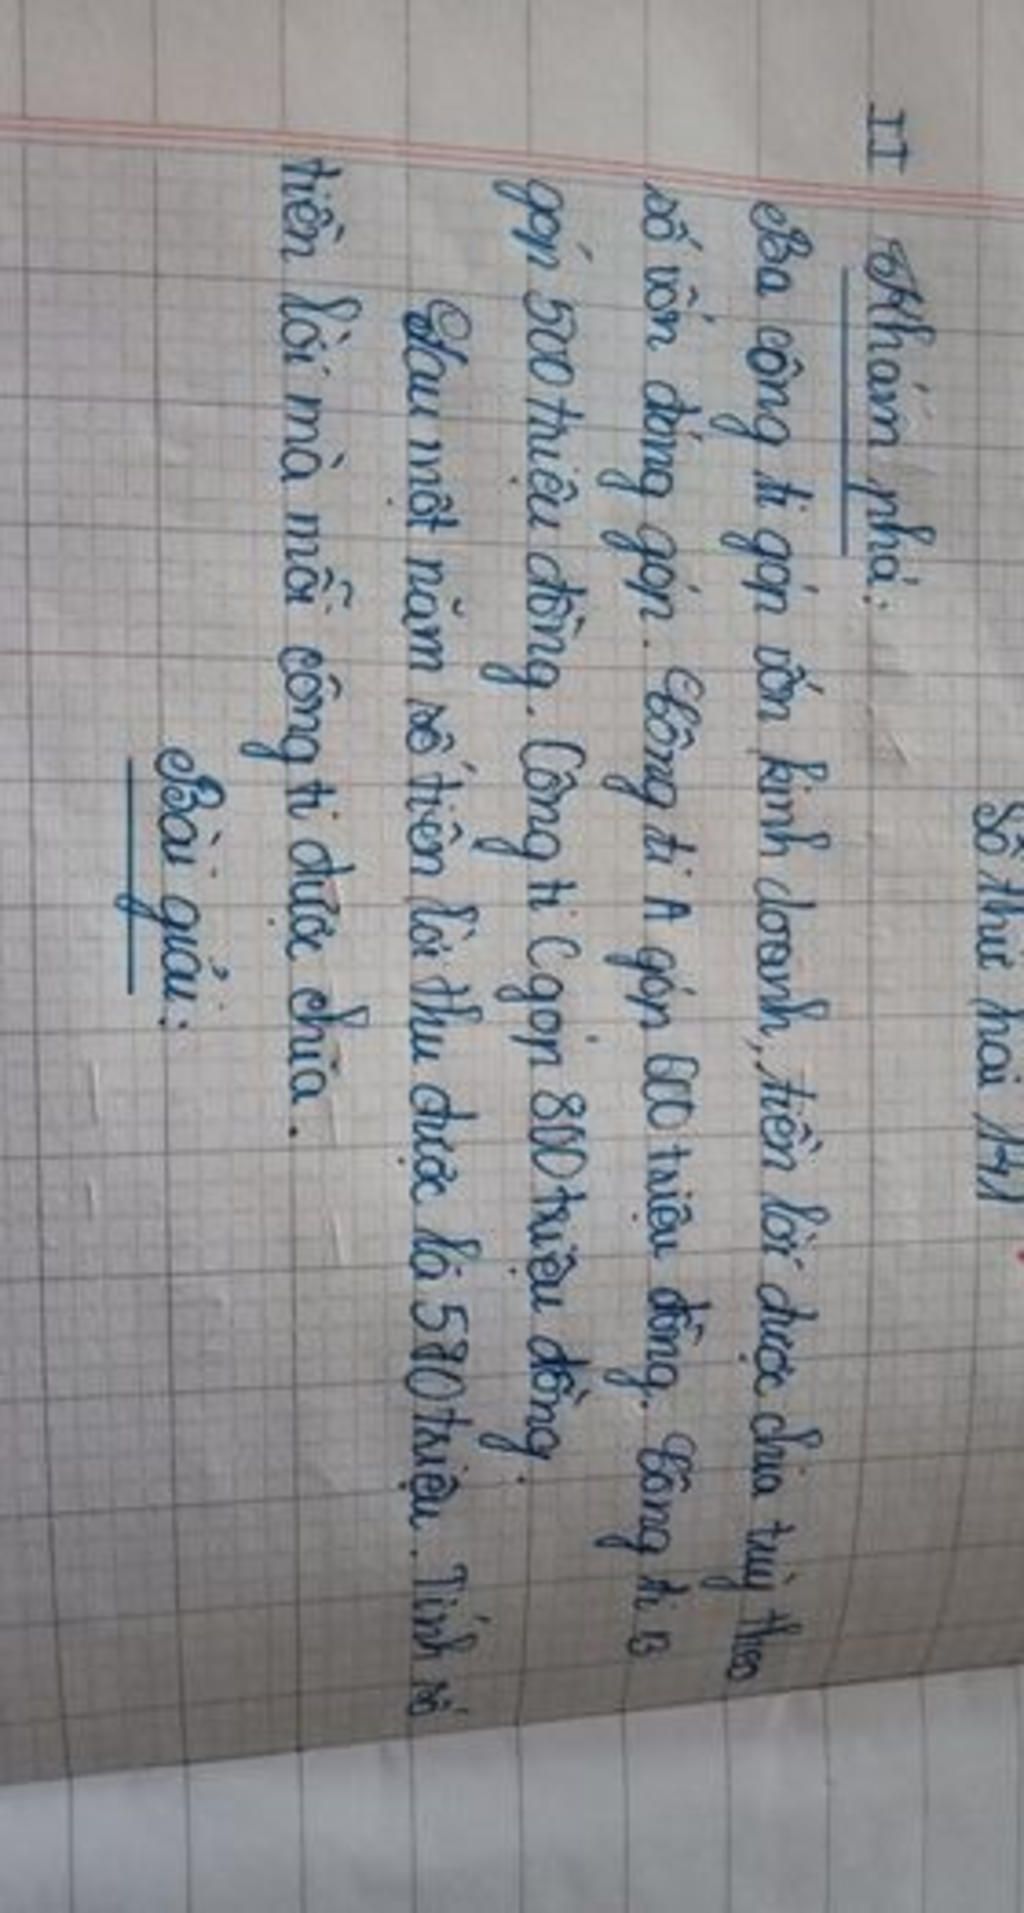 Số thứ hai 141
II Khám phá:
Ba công ti góp vốn kinh doanh, tiền lời được chia tuỳ theo
số vốn đóng góp. Công ti A góp 600 triệu đồng. Công ti B
góp 500 triệu đồng. Công ti C góp 800 triệu đồng.
Sau một năm số tiền lời thu được là 570 triệu. Tính số
tiền lời mà mỗi công ti được chia.
Bài giải: